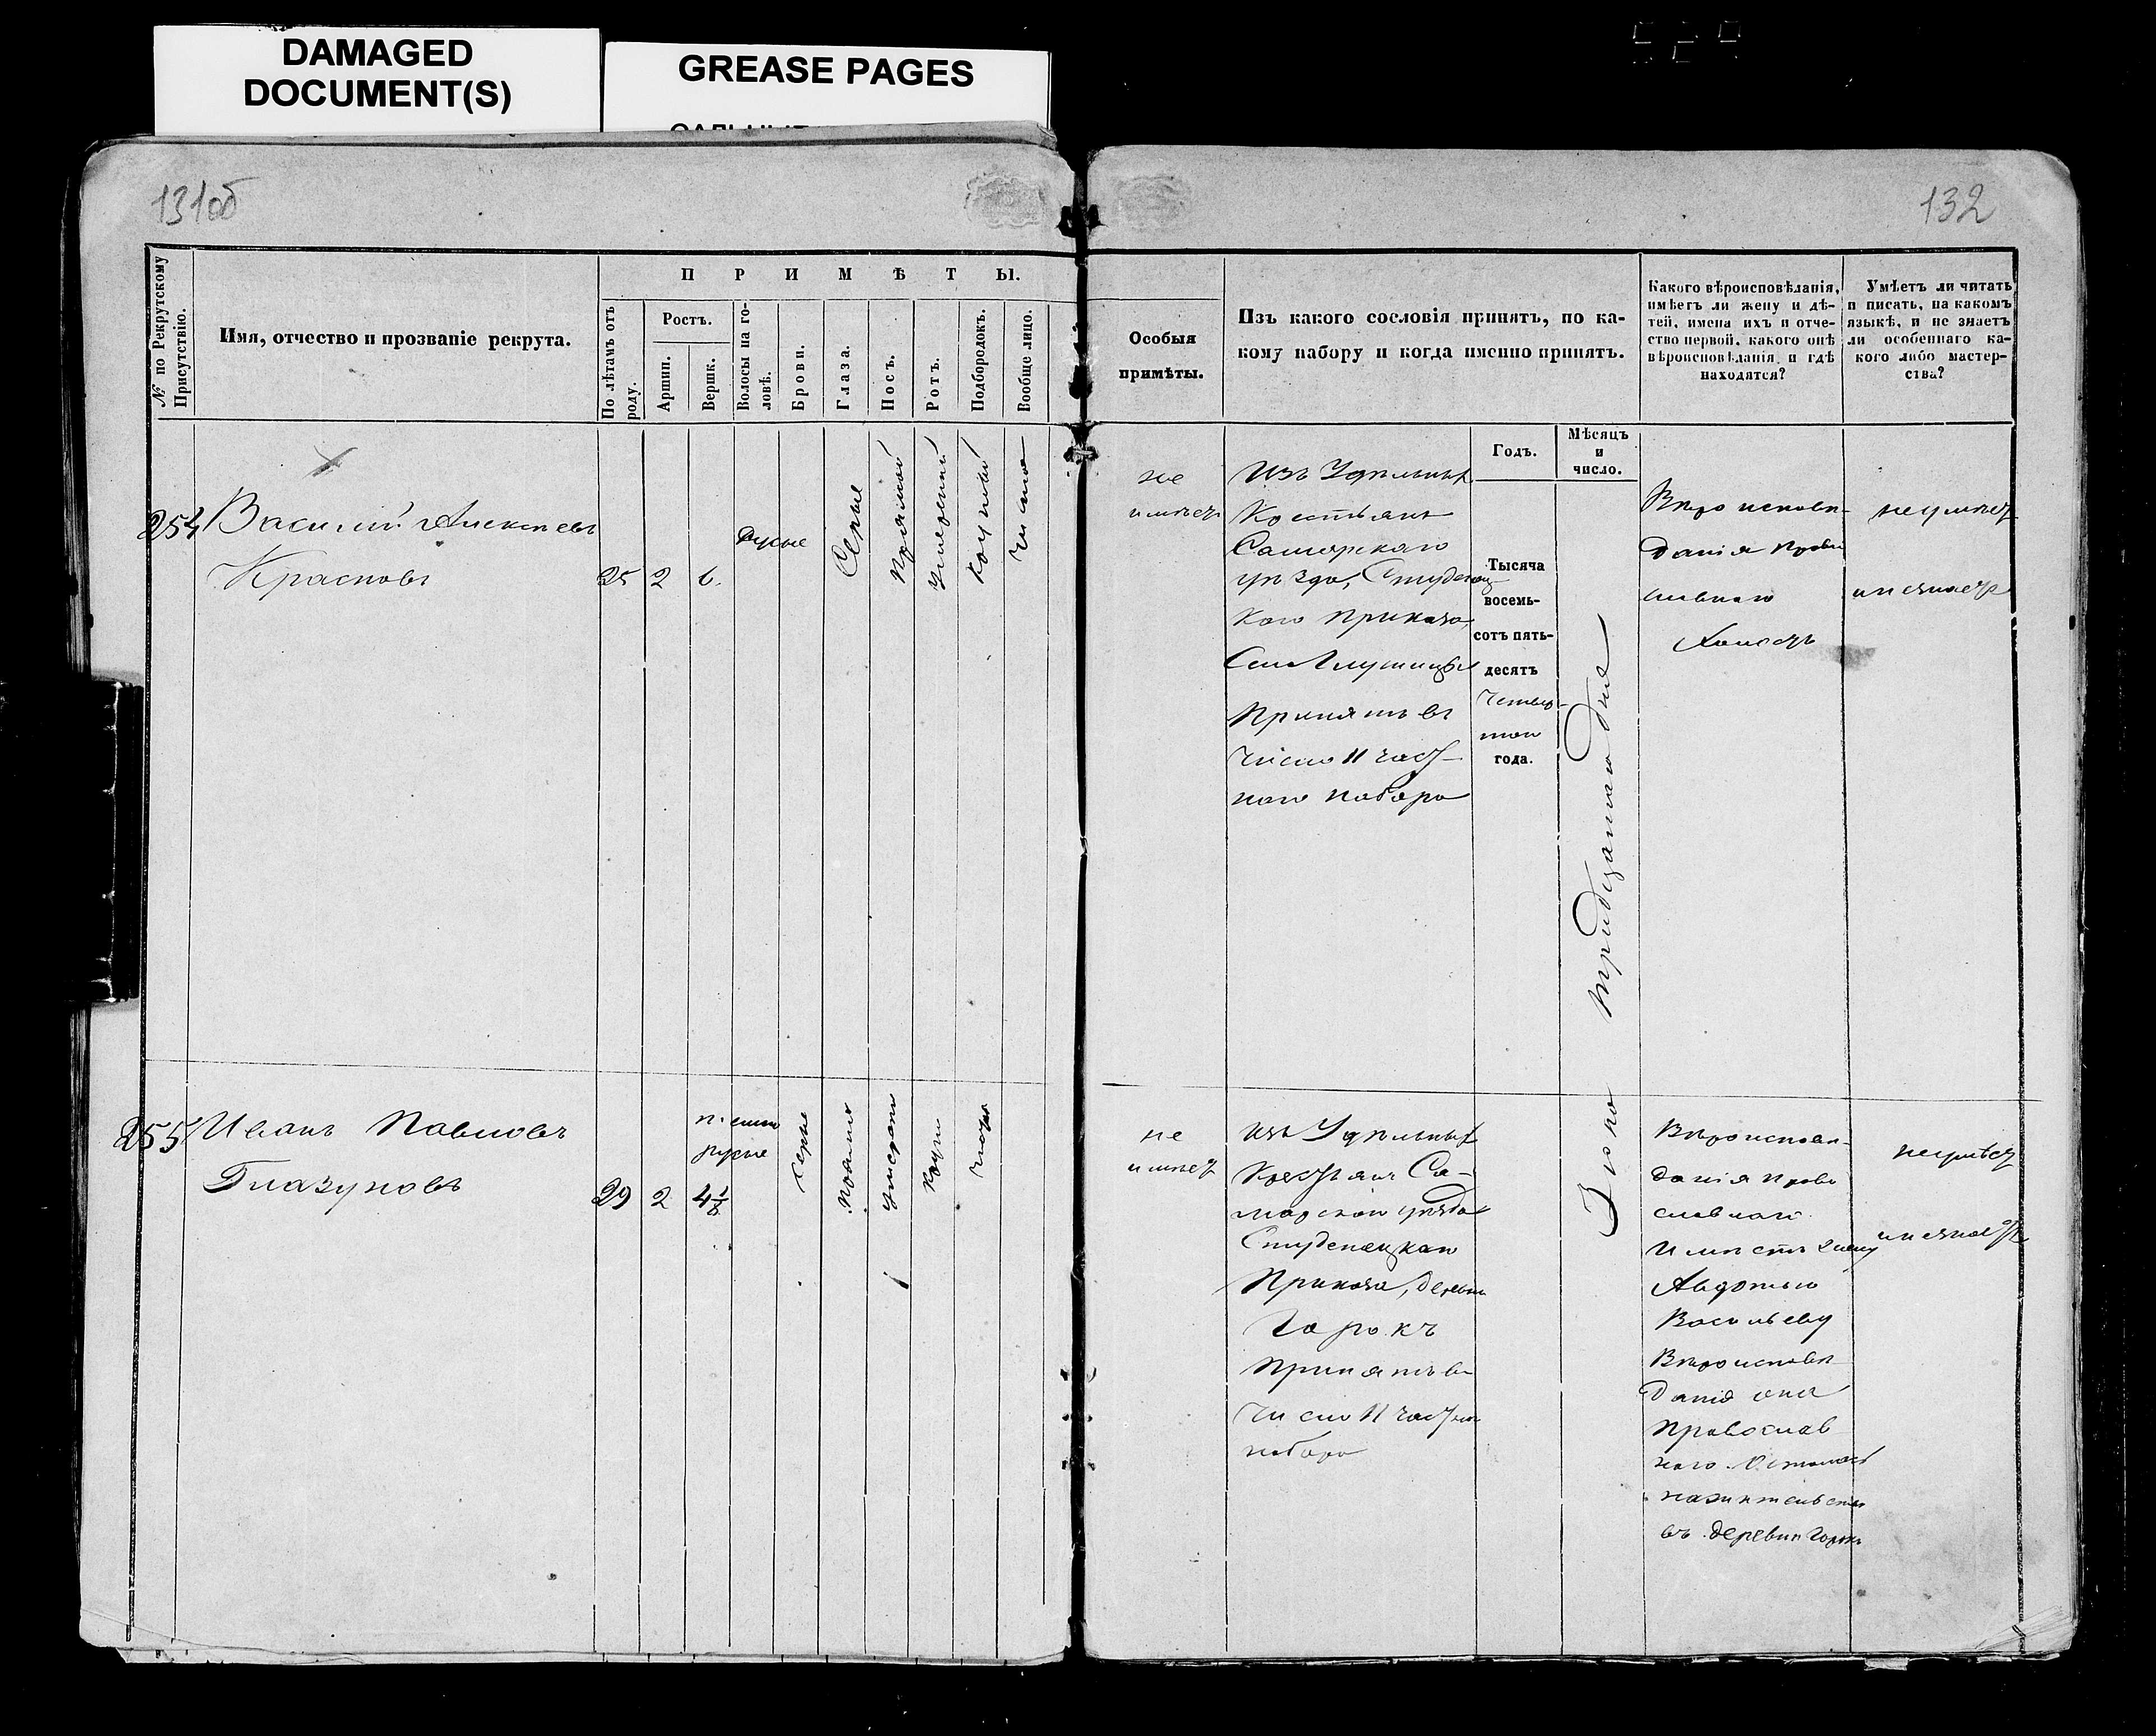 DAMAGED
DOCUMENT(S)
GREASE PAGES
131об
132
№ по Рекрутскому
Присутствію.
Имя, отчество и прозваніе рекрута.
ПРИМѢТЫ.
По лѣтамъ отъ
роду.
Ростъ.
Аршин.
Вершк.
Волосы на го-
ловѣ.
Брови.
Глаза.
Носъ.
Ротъ.
Подбородокъ.
Вообще лицо.
Особыя
примѣты.
Изъ какого сословія принятъ, по ка-
кому набору и когда именно принятъ.
Какого вѣроисповѣданія,
имѣетъ ли жену и дѣ-
тей, имена ихъ и отче-
ство первой, какого онѣ
вѣроисповѣданія и гдѣ
находятся?
Умѣетъ ли читать
и писать, на какомъ
языкѣ, и не знаетъ
ли особеннаго ка-
кого либо мастер-
ства?
Годъ.
Мѣсяцъ
и
число.
254
Василий Алексѣевъ
Красновъ
25
2
6.
Русые
Серые
Прямой
Умеренный
Круглый
Чистое
не
имѣетъ
Изъ Удѣльныхъ
Крестьянъ
Самарскаго
уѣзда, Студенец-
каго приказа,
Села
Принятъ въ
число 11 част-
наго набора
Тысяча
восемь-
сотъ пять-
десятъ
Четвер-
таго
года.
Іюля тридцатаго дня
Вѣроисповѣ-
данія Право
славнаго
Холостъ
неумѣетъ
и не знаетъ
255
Иванъ Павловъ
Глазуновъ
29
2
4 1/8
русые
Серые
умѣрен
Кругл
Чистое
не
имѣетъ
изъ Удѣльныхъ
Крестьянъ Са-
марскаго уѣзда
Студенецкаго
Приказа, деревни
Горокъ
Принятъ въ
Число 11 частнаго
набора
Вѣроисповѣ-
данія Право
славнаго.
Имѣетъ жену
Авдотью
Васильеву
Вѣроисповѣ-
данія она
Православ
наго. Осталась
на жительствѣ
въ деревни Горокъ
неумѣетъ
и не знаетъ